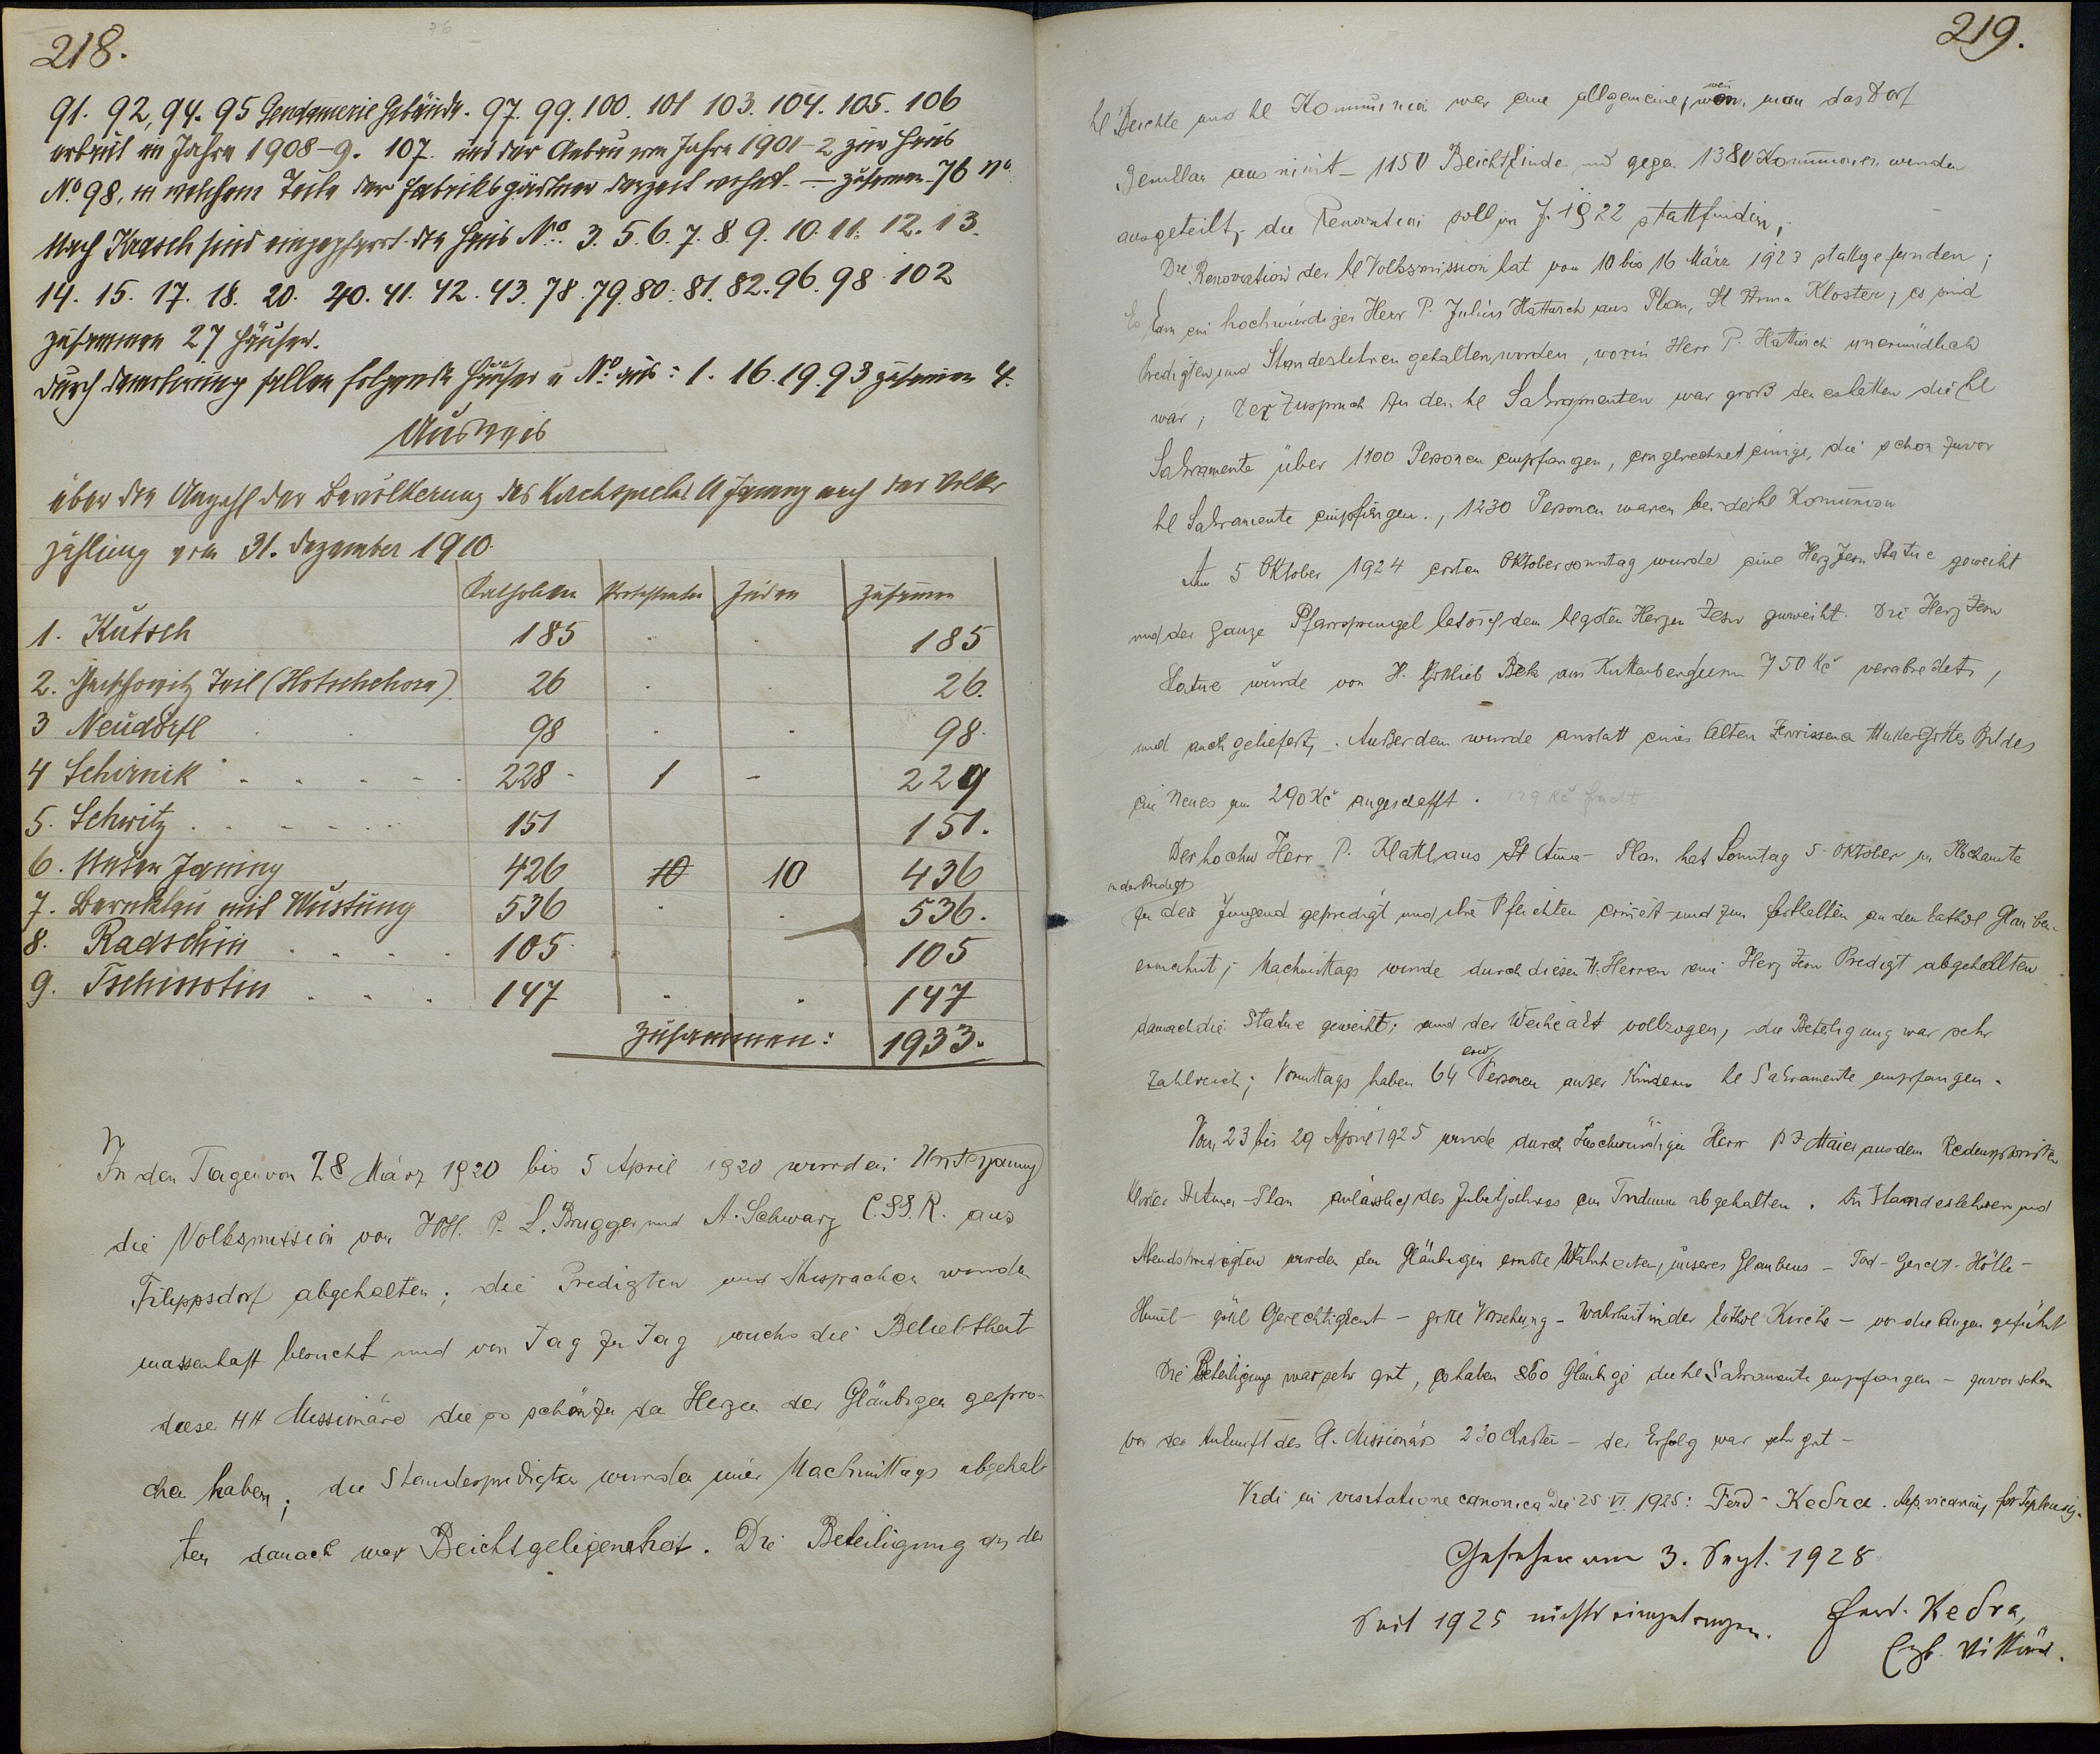 218.
91. 92, 94. 95 Gendamerie Gebäude. 97. 99. 100. 101 103. 104. 105. 106
erbaut im Jahre 1908-9. 107. und der Anbau vom Jahre 1901-2 zum Haus
No. 98, in welchem Teile der Fabriksgärtner derzeit wohnt. — zusammen 76 No
Nach Krasch sind eingepfarrt die Haus No. 3. 5. 6. 7. 8. 9. 10. 11. 12. 13.
14. 15. 17. 18. 20. 40. 41. 42. 43. 78. 79. 80. 81. 82. 96. 98. 102
zusammen 27 Häuser.
durch Demolierung fallen folgende Häuser u No. aus: 1. 16. 19. 93 zusammen 4.
Ausweis
über die Anzahl der Bevölkerung des Kirchspieles U Jamny nach der Volks
zählung vom 31. Dezember 1910.
Katholiken Protestanten Juden Zusammen
1. Kutsch 185 . . 185
2. Teil (Hotschehora) 26 . . 26.
3 Neudörfl . . 98 . . 98.
4 Schirnik . . . . . 228 - 1 - 229
5. Schwitz . . . . . . 151 151.
6. Unter Jamny 426 10 10 436
7. Bernklau mit Wustung 536 . . 536.
8. Radschin . . . . 105 . 105
9. Tschinotin . . . 147 . . 147
Zusammen: 1933.
In den Tagen von 28 März 1920 bis 5 April 1920 wurde in Unterjamny
die Volksmission von HH. P. L. Brugger und A. Schwarz C.SS.R. aus
Filippsdorf abgehalten; die Predigten und Ansprachen wurden
massenhaft besucht und von Tag zu Tag wuchs die Beliebtheit
diese HH Missionäre die so schön zu den Herzen der Gläubigen gespro-
chen haben; die Standespredigten wurden immer Nachmittags abgehal-
ten danach war Beichtgelegenheit. Die Beteiligung an der
219.
hl Beichte und hl Kommunion war eine allgemeine, wenn man das Dorf
ausnimmt – 1150 Beichtkinder und gegen 1380 Kommunionen wurden
ausgeteilt, die Renovation soll im J. 1922 stattfinden;
Die Renovation der hl Volksmission hat vom 10 bis 16 März 1923 stattgefunden;
Es kam ein hochwürdiger Herr P. Julius Hattasch aus Plan, St Anna Kloster; es sind
Predigten und Standeslehren gehalten worden, worin Herr P. Hattasch unermüdlich
war; Der Zuspruch zu den hl Sakramenten war groß den es hatten die hl
Sakramente über 1100 Personen empfangen, eingerechnet einige, die schon zuvor
hl Sakramente empfingen., 1230 Personen waren bei der hl Kommunion
Am 5 Oktober 1924 ersten Oktobersonntag wurde eine Herz Jesu Statue geweiht
und der ganze Pfarrsprengel dem hlgsten Herzen Jesu geweiht. Die Herz Jesu
Statue wurde von H. Gottlieb Bek aus um 750 Kč verabredet,
und auch geliefert. Außerdem wurde anstatt eines alten zerrissenen Muttergottes Bildes
ein neues um 290 Kč angeschafft. 129 Kč
Der hochw Herr P. Klattl aus St Anna - Plan hat Sonntag 5. Oktober im Hochamte
in der Predigt
zu der Jungend gepredigt und ihre Pflichten erinnert und zum festhalten an den kathol Glauben
ermahnt; Nachmittags wurde durch diesen H. Herren eine Herz Jesu Predigt abgehalten
danach die Statue geweiht; und der Weiheakt vollzogen, die Beteiligung war sehr
zahlreich; Vormittags haben 64 erw Personen außer Kindern hl Sakramente empfangen.
Vom 23 bis 29 April 1925 wurde durch hochwürdigen Herr P J Maier aus dem Redemptoristen
Kloster St Anna - Plan anlässlich des Jubeljahres ein Triduum abgehalten. In Standeslehren und
Abendspredigten wurden den Gläubigen ernste Wahrheiten, unseres Glaubens – Tod – Gericht – Hölle –
Himml – göttl Gerechtigkeit – göttl Vorsehung – Wahrheit in der kathol Kirche – vor die Augen geführt
Die Beteiligung war sehr gut, es haben 860 Gläubige die hl Sakramente empfangen – zuvor schon
vor der Ankunft des H. Missionärs 230 – der Erfolg war sehr gut –
Vidi in visitatione canonica die 25 VI. 1925: Ferd. Kedra.
Gesehen am 3. Sept. 1928
Seit 1925 nichts eingetragen. Ferd. Kedra,